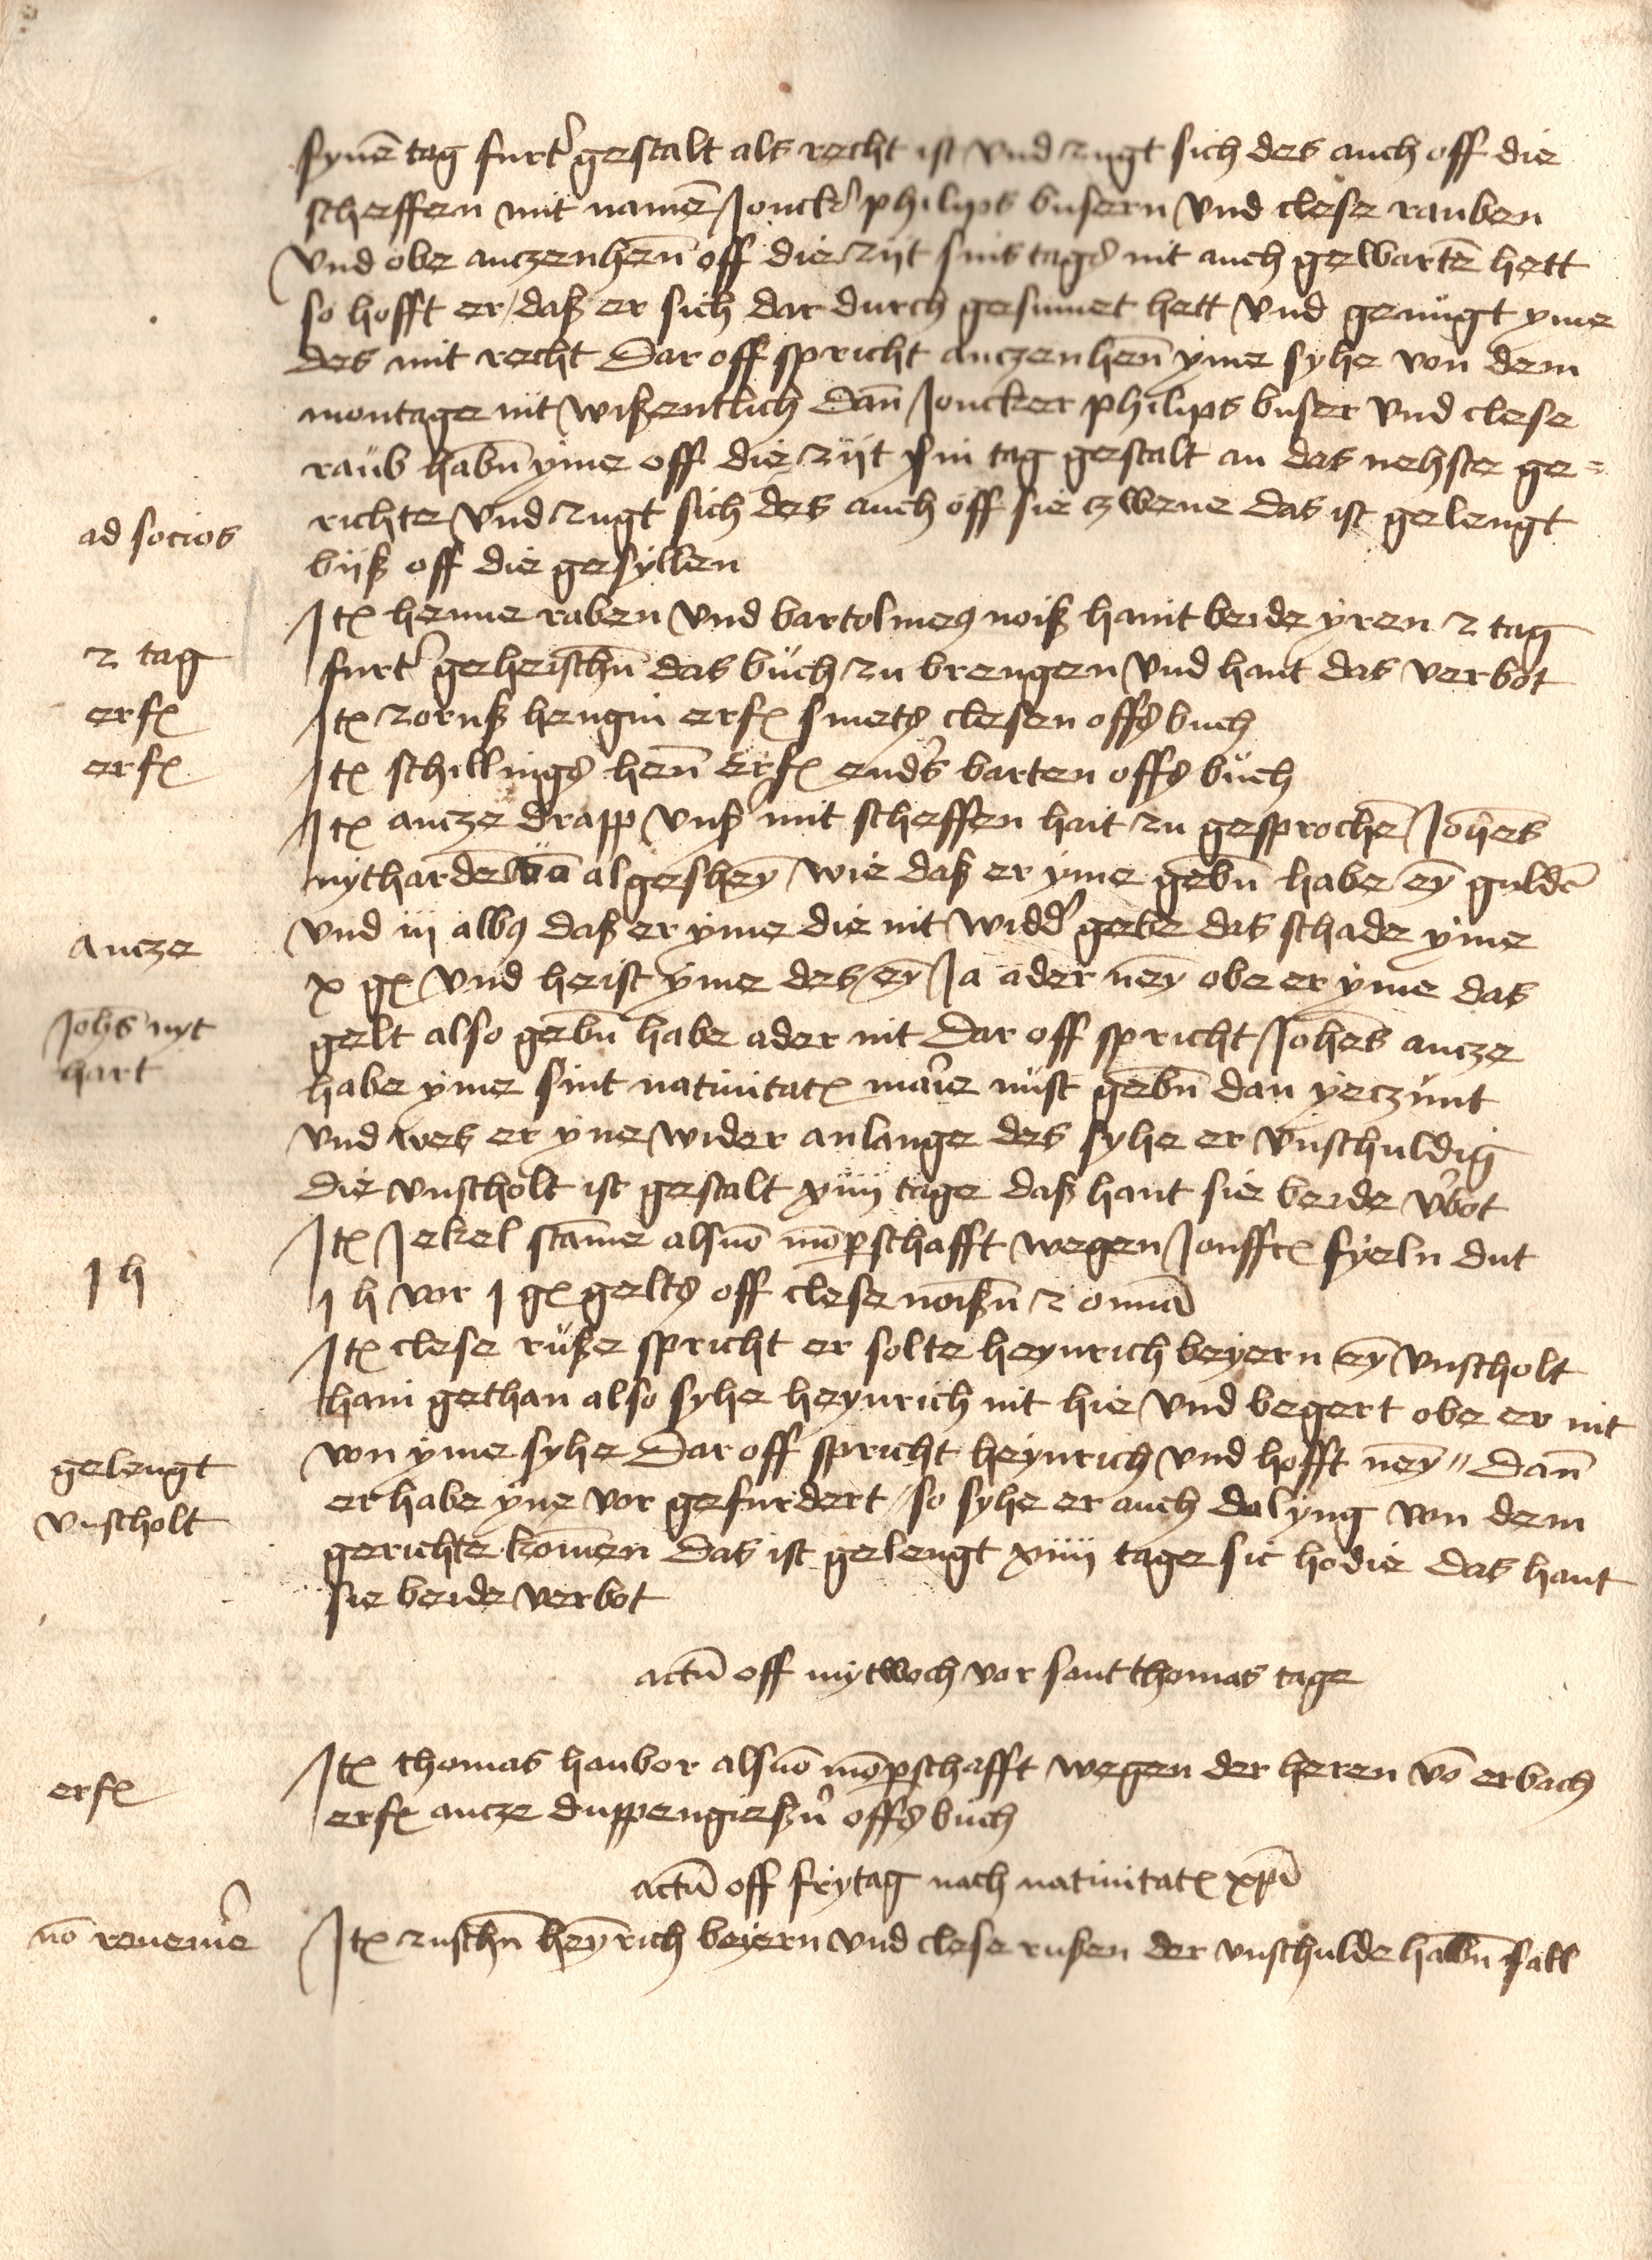 synē tag furt' gestalt als recht ist vnd zugt sich des auch off die
scheffen mit namē Jonck' philips busern vnd clese rauben
vnd obe anczenhen̄ off die zijt sins tags nit auch gewartē hett
so hofft er / daß er sich dar durch gesumet hett vnd genugt yme
des mit recht Dar off spricht anczenhen̄ yme syhe von dem
montage nit wißentlich dan̄ Joncker philips buser vnd clese
raub habn̄ yme off die zijt sin tag gestalt an das nehste ge=
ad socios
richte vnd zugt sich des auch off sie czwene das ist gelengt
biß off die gesyllen
Itē henne raben vnd bartolmeꝯ noiß haint beide yren 2 tag
2 tag
furt' geheischn̄ das buch zu brengen vnd hant das verbot
erfē
Itē zornß hengin erfē smets clesen offs buch
erfē
Itē schillings hen̄ Erfē end's barten offs buch
Itē ancze drapp vnß' mit scheffen hait zu gesprochē Joh̄es
nythardē vō algesheȳ wie daß er yme gebn̄ habe eȳ guldē
ancze
vnd iij albꝯ daß er yme die nit widd' gebe das schade yme
x gē vnd heist yme des eȳ Ja ader neȳ obe er yme das
Joh̄s nyt
hart
gelt also gebn̄ habe ader nit Dar off spricht Joh̄es ancze
habe yme sint natiuitatē mar̄ie nust gebn̄ dan yeczunt
vnd wes er yne wider anlange des syhe er vnschuldig
die vnscholt ist gestalt xiiij tage daß hant sie beide v'bot
Itē Jekel stam̄e alsuō mōpschafft wegen Jonffrē fyeln dut
1 h
1 h vor 1 gē gelts off clese noißn̄ 2 omnīa
Itē clese rußе spricht er solte heynrich beyern eȳ vnscholt
hain gethan also syhe heynrich nit hie vnd begert obe er nit
gelengt
von yme syhe Dar off spricht heynrich vnd hofft neȳ // dan̄
vnscholt
er habe yne vor gefurdert / so syhe er auch daling von dem
gerichte kom̄en das ist gelengt xiiij tage sic hodie das hant
sie beide verbot
actū off mytwoch vor sant thomas tage
Itē thomas haubor alsuō mōpschafft wegen der heren vō erbach
erfē
erfē ancze duppengießn̄ offs buch
actū off frytag nach natiuitatē xp̄i
nō reueni'e
Itē zuschn̄ heȳrich beyern vnd clese rußen der vnschulde halbn̄ sall